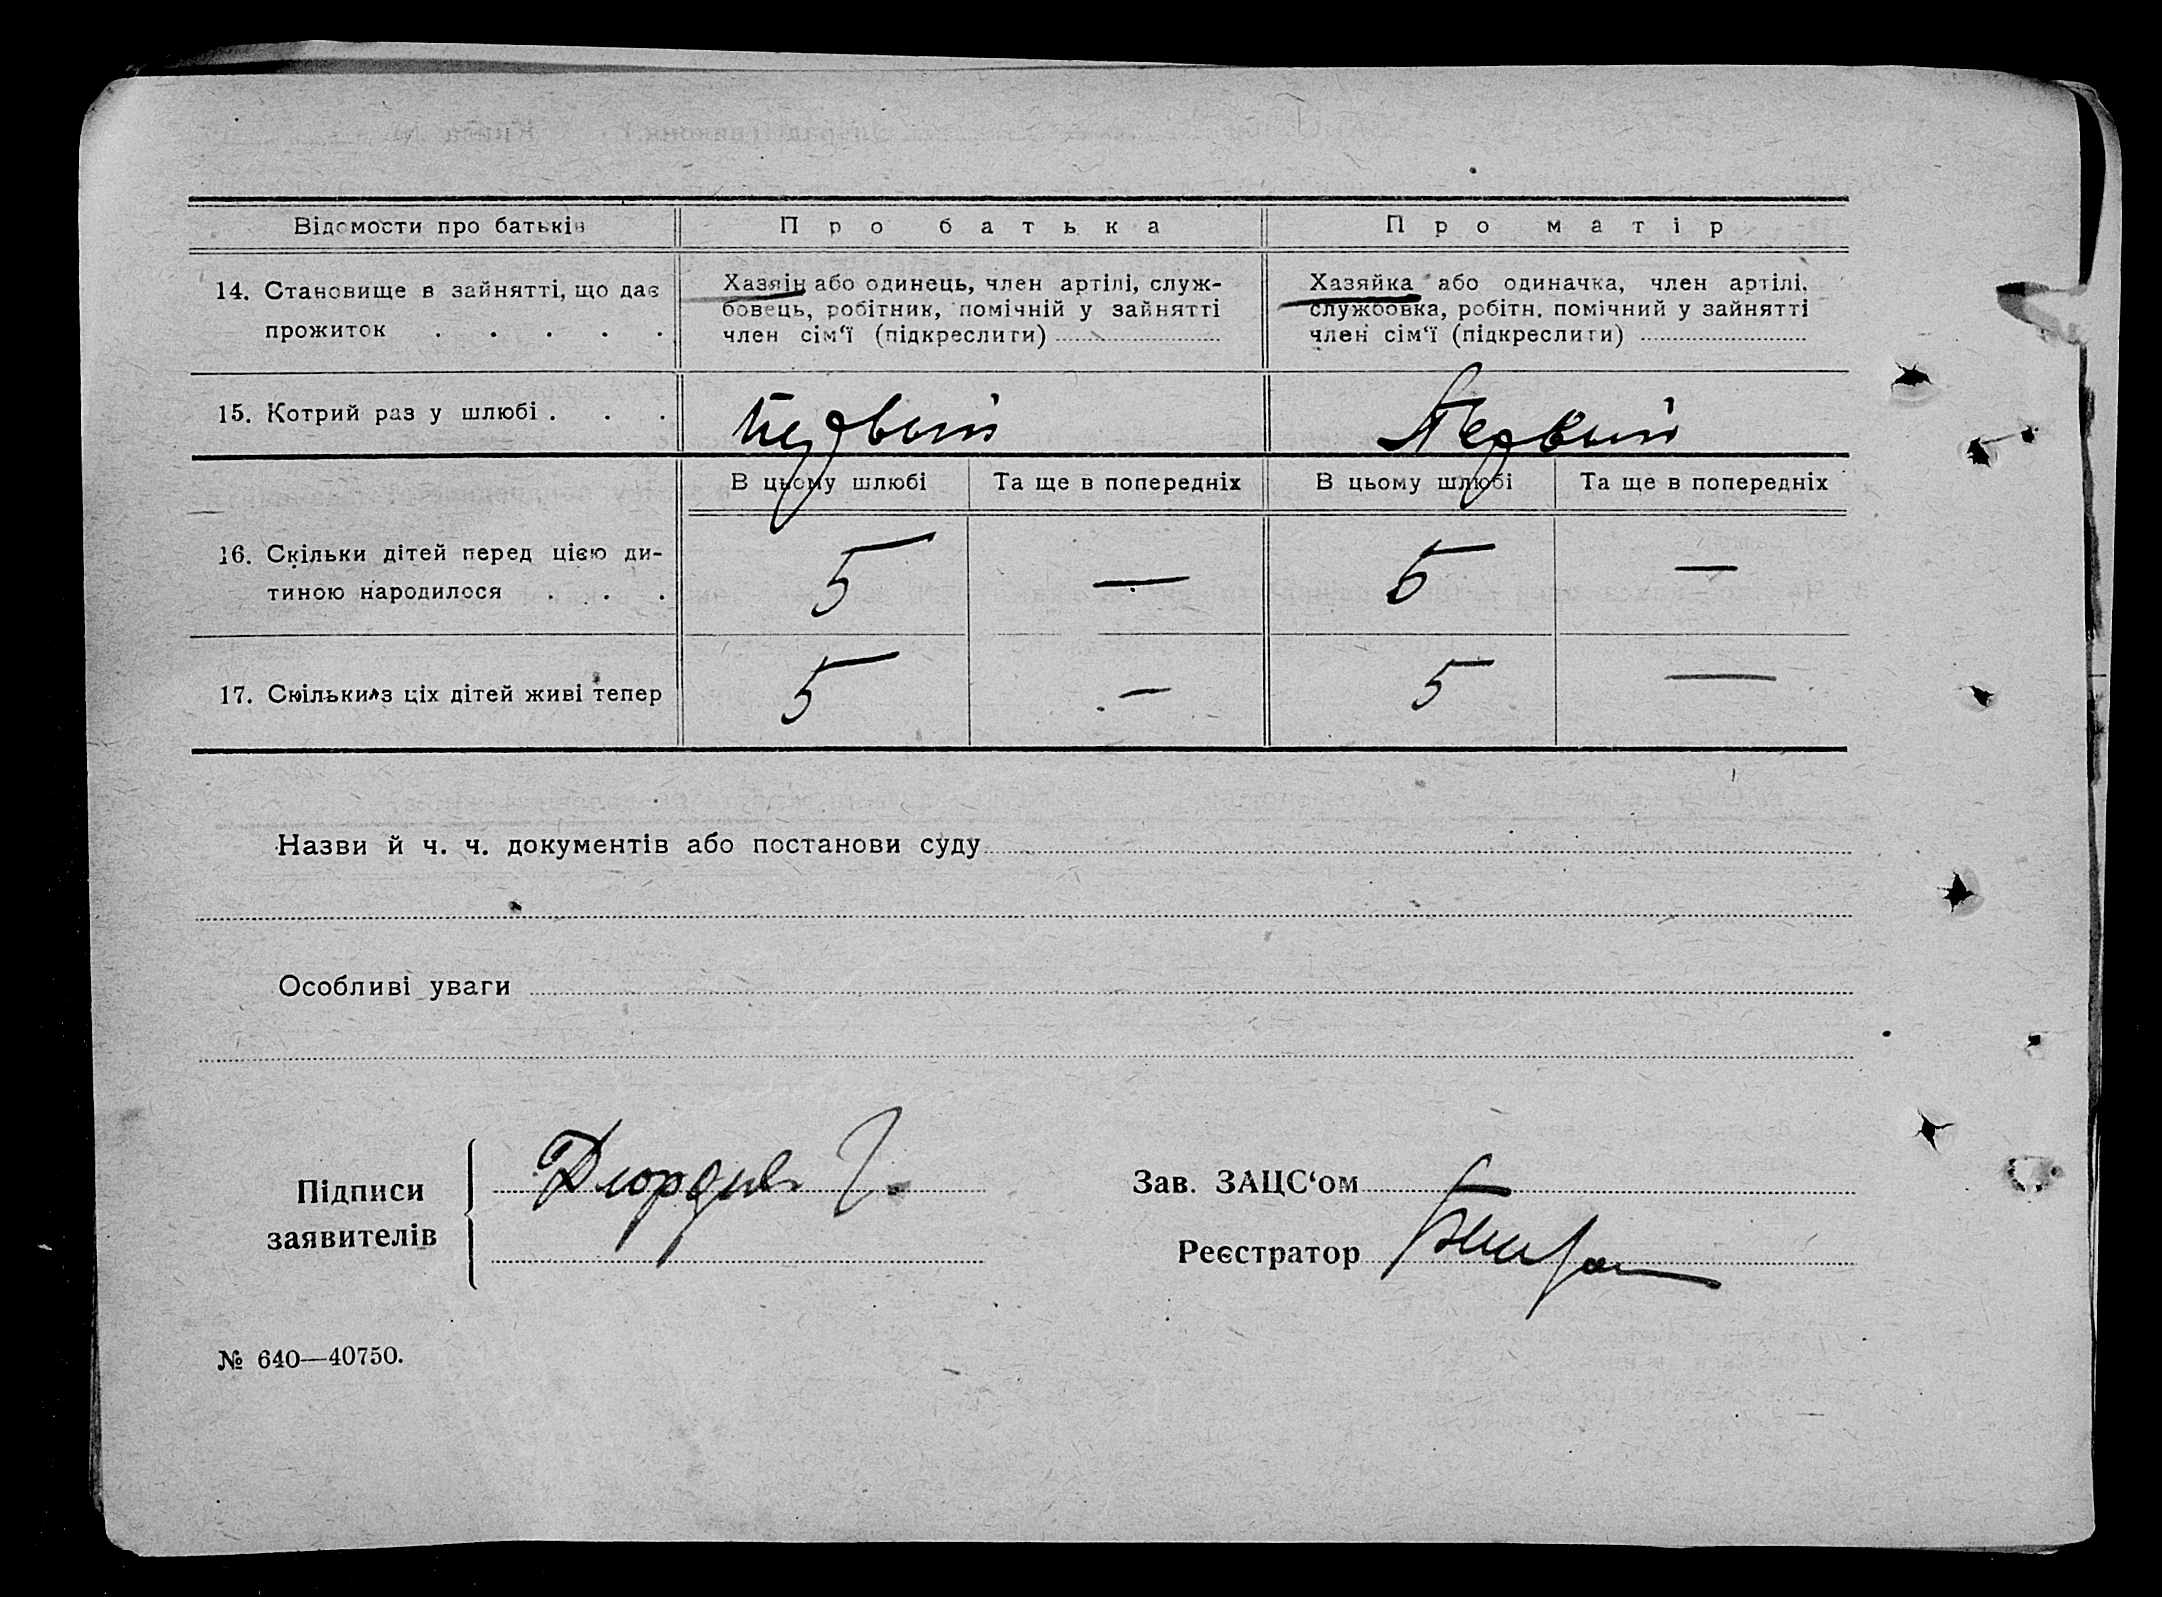 Відомости про батьків
Про батька
Про матір
14. Становище в зайнятті, що дає
прожиток . . . . .
Хазяін або одинець, член артілі, служ-
бовець, робітник, помічній у зайнятті
член сім‘ї (підкреслити)
Хазяйка або одиначка, член артілі,
службовка, робітн. помічний у зайнятті
член сім‘ї (підкреслити)
15. Котрий раз у шлюбі . . .
первый
Первый
В цьому шлюбі
Та ще в попередніх
В цьому шлюбі
Та ще в попередніх
16. Скільки дітей перед цією ди-
тиною народилося . . .
5
—
5
—
17. Скільки з ціх дітей живі тепер
5
—
5
—
Назви й ч. ч. документів або постанови суду
Особливі уваги
Підписи
заявителів
Зав. ЗАЦС‘ом
Реєстратор
№ 640—40750.